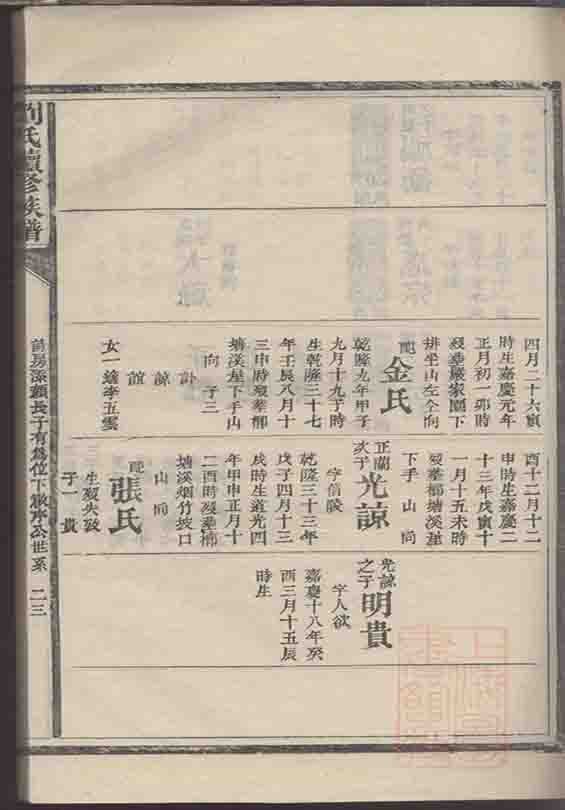 四月二十六寅
時生嘉慶元年
正月初一卯時
歿葬嚴家園下
排坐山左仝向
配金氏
乾隆九年甲子
九月十九子時
生乾隆三十七
年壬辰八月十
三申時歿葬鄉
塘溪堐下手山
向 子三
訃
諒
誼
女一適李五雲
酉十二月十二
申時生嘉慶二
十三年戊寅十
一月十五未時
歿葬鄉塘溪堐
下手山向
正蘭次子光諒
字信陵
乾隆三十三年
戊子四月十三
戌時生道光四
年甲申正月十
二酉時歿葬鄉
塘溪烟竹坡口
山向
配張氏
生歿失攷
子一 貴
光諒之子明貴
字人欲
嘉慶十八年癸
酉三月十五辰
時生
劉氏續修族譜
前房添賴長子有為位下徽序公世系 二三
上海圖書館藏